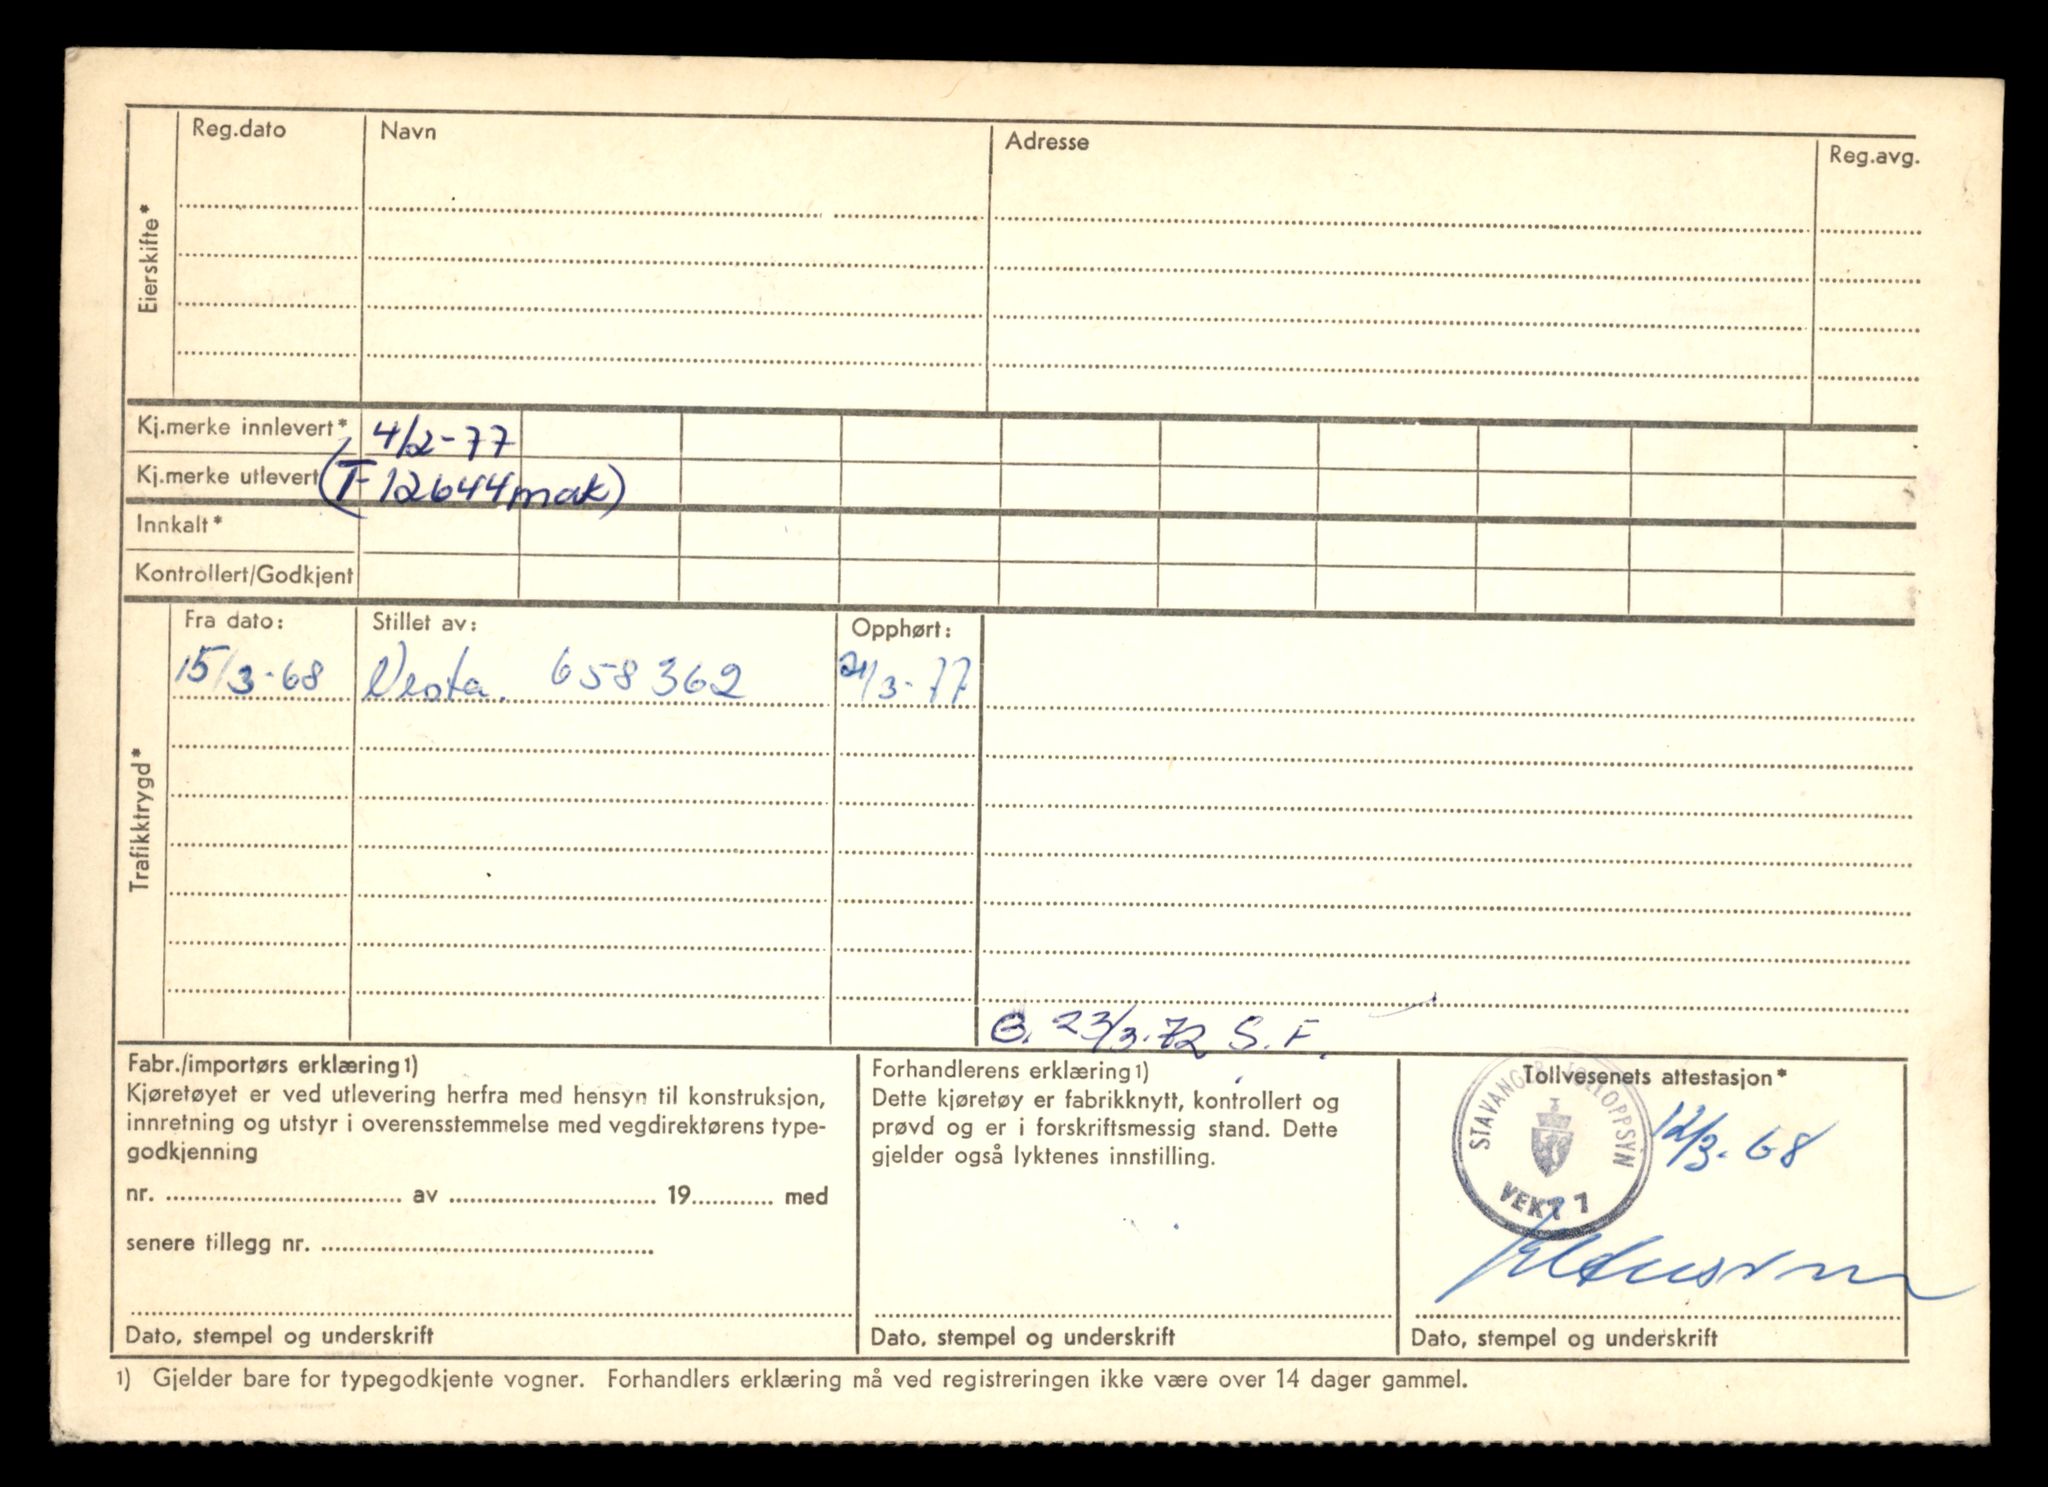 Reg.dato Navn Adresse Reg.avg.
Eierskifte*
Kj.merke innlevert* 4/2-77
Kj.merke utlevert (T-12644 mak)
Innkalt*
Kontrollert/Godkjent
Trafikktrygd*
Fra dato: Stillet av: Opphørt:
15/3-68 Vesta. 658362 21/3-77
23/3-72 S.F.
Fabr./importørs erklæring1)
Kjøretøyet er ved utlevering herfra med hensyn til konstruksjon,
innretning og utstyr i overensstemmelse med vegdirektørens type-
godkjenning
nr. av 19 med
senere tillegg nr.
Dato, stempel og underskrift
Forhandlerens erklæring1)
Dette kjøretøy er fabrikknytt, kontrollert og
prøvd og er i forskriftsmessig stand. Dette
gjelder også lyktenes innstilling.
Dato, stempel og underskrift
Tollvesenets attestasjon*
STAVANGER TOLLOPPSYN
VEKT 1
12/3-68
Dato, stempel og underskrift
1) Gjelder bare for typegodkjente vogner. Forhandlers erklæring må ved registreringen ikke være over 14 dager gammel.